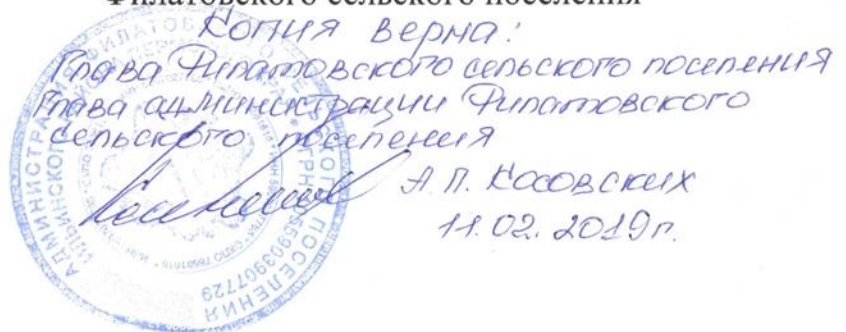 Филатовского сельского поселения
Копия верна:
Глава Филатовского сельского поселения
Глава администрации Филатовского
сельского поселения
А.П. Косовских
11.02.2019г.
АДМИНИСТРАЦИЯ ФИЛАТОВСКОГО СЕЛЬСКОГО ПОСЕЛЕНИЯ
ИЛЬИНСКОГО